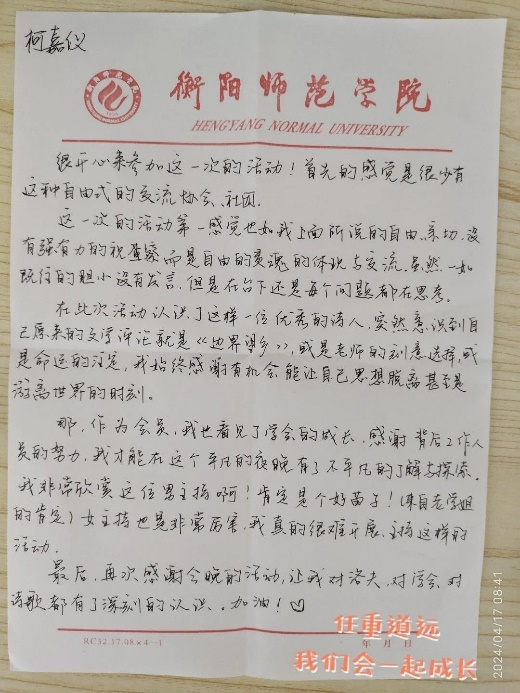 柯嘉仪
衡阳师范学院
HENGYANG NORMAL UNIVERSITY
很开心来参加这一次的活动！首先的感觉是很少有
这种自由式的交流协会、社团.
这一次的活动第一感觉也如我上面所说的自由、亲切.没
有强有力的祝 而是自由的灵魂的体现与交流.虽然一如
既往的胆小没有发言，但是在台下还是每个问题都在思考。
在此次活动认识了这样一位优秀的诗人，突然意识到自
己原来的文学评论就是《边界望乡》，或是老师的刻意选择，或
是命运的注定，我始终感谢有机会能让自己思想脱离甚至是
游离世界的时刻.
那，作为会员，我也看见了学会的成长，感谢背后工作人
员的努力，我才能在这个平凡的夜晚有了不平凡的了解与探索.
我非常欣赏这位男主持啊！肯定是个好苗子！（来自老学姐
的肯定）女主持也是非常厉害，我真的很难开展、主持这样的
活动.
最后，再次感谢今晚的活动，让我对洛夫、对学会、对
诗歌都有了深刻的认识。加油！♡
RC32.17.08×4-1
年 月 日
任重道远
我们会一起成长
2024/04/17 08:41